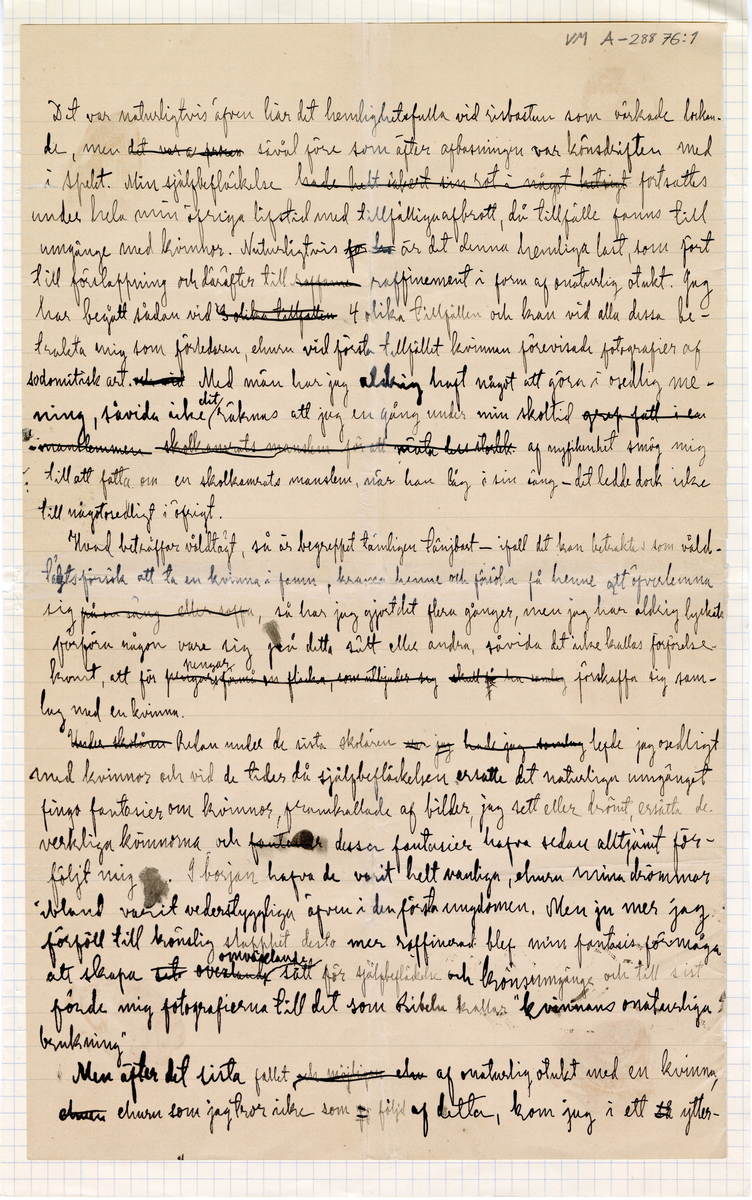 VM A-288 76:1
Det var naturligtvis äfven här det hemlighetsfulla vid risbastun som värkade locken-
de, men det var såväl före som äfter afbasningen var könsdriften med
i spelt. Min självbefläckelse hade helt sin rot i något fortsattes
under hela min öfriga lifstid med tillfälliga afbrott, då tillfälle fanns till
umgänge med kvinnor. Naturligtvis är det denna hemliga last, som fört
till förslappning och därefter till raffinement i form af onaturlig otukt. Jag
har begått sådan vid 3 olika tillfällen 4 olika tillfällen och kan vid alla dessa be-
trakta mig som förledaren, ehuru vid första tillfället kvinnan förevisade fotografier af
sodomitisk art. Med män har jag aldrig haft något att göra i osedlig me-
ning, såvida icke det räknas att jag en gång under min skoltid grep fatt i en
manslemmen skolkamrats manslem för att af nyfikenhet smög mig
till att fatta om en skolkamrats manslem, när han låg i sin säng – det ledde dock icke
till något osedligt i öfrigt.
Hvad beträffar våldtägt, så är begreppet tämligen tänjbart – ifall det kan betraktas som våld-
tägtsförsök att ta en kvinna i famn, krama henne och försöka få henne att öfverlemna
sig på en säng eller soffa, så har jag gjort det flera gånger, men jag har aldrig lyckats
förföra någon vare sig på detta sätt eller andra, såvida det icke kallas förförelse-
konst, att för pengar förmå en flicka, som utbjuder sig förskaffa sig sam-
lag med en kvinna.
Under skolåren Redan under de sista skolåren jag hade jag samlag lefde jag osedligt
med kvinnor och vid de tider då självbefläckelsen ersatte det naturliga umgänget
fingo fantasier om kvinnor, framkallade af bilder, jag sett eller drömt, ersätta de
verkliga kvinnorna och fantasier dessa fantasier hafva sedan alltjämt för-
följt mig. I början hafva de varit helt vanliga, ehuru mina drömmar
ibland varit vederstyggliga äfven i den första ungdomen. Men ju mer jag
förföll till könslig slapphet desto mer raffinerad blef min fantasis förmåga
att skapa omväxlande sätt för självbefläckelse och könsumgänge och till sist
förde mig fotografierna till det som Bibeln kallar "kvinnans onaturliga
brukning"
Men äfter det sista fallet och möjligen af onaturlig otukt med en kvinna,
ehuru ehuru som jag tror icke som följd af detta, kom jag i ett ytter-